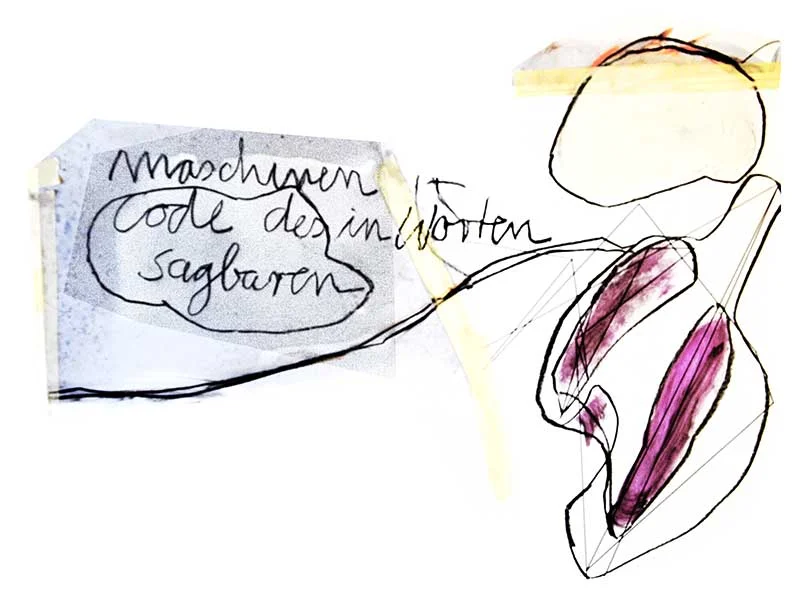 maschinen
Code des in Worten
sagbaren